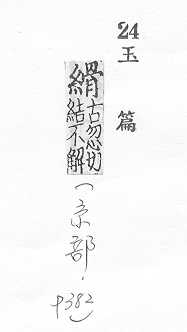 24
玉篇
縎
古忽切
結不解
(糸部·
P382)